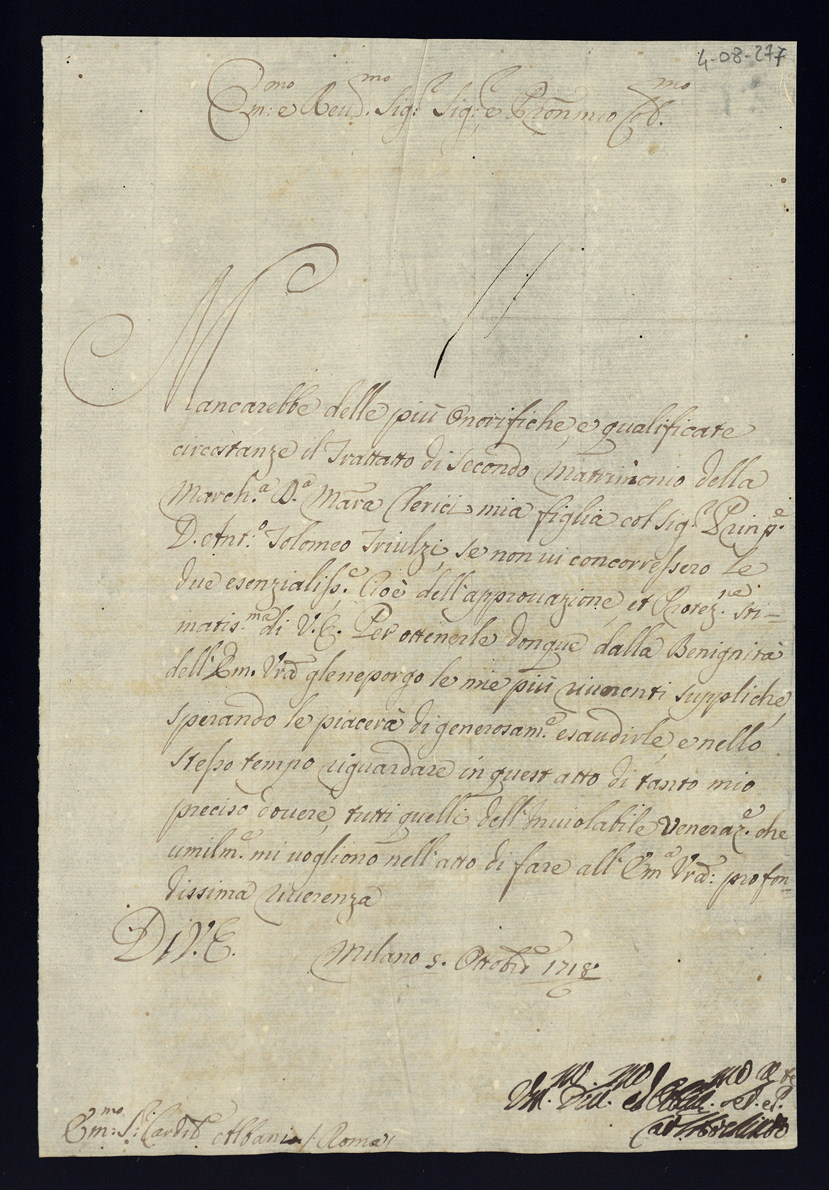 4-08-277
Em:mo e Reud.mo Sig.r Sig.r e Pron mio Col.mo
Mancarebbe delle più onorifiche, e qualificate
circostanze il Trattato di secondo Matrimonio della
March.a D.a Mara Clerici mia figlia col Sig.r Prinp.e
D. Ant.o Tolomeo Triulzi, se non ui concorressero le
due esenzialiss.e Cioè dell'approuazione, et
matis.ma di V.E. Per ottenerle donque dalla Benignità
dell'Em. Vra gleneporgo le mie più riuerenti suppliche,
sperando le piacerà di generosam.e esaudirle, e nello
stesso tempo riguardare in quest atto di tanto mio
preciso douere, tutti quelli dell'Inuiolabile Veneraz.e che
umilm.e mi uogliono nell'atto di fare all' Em.a Vra: profon-
dissima riuerenza
Di V.E. Milano 5. Ottobre 1718
Um.mo Diu.mo ed Obb.mo
Em:mo S.r Card.le Albani / Roma /